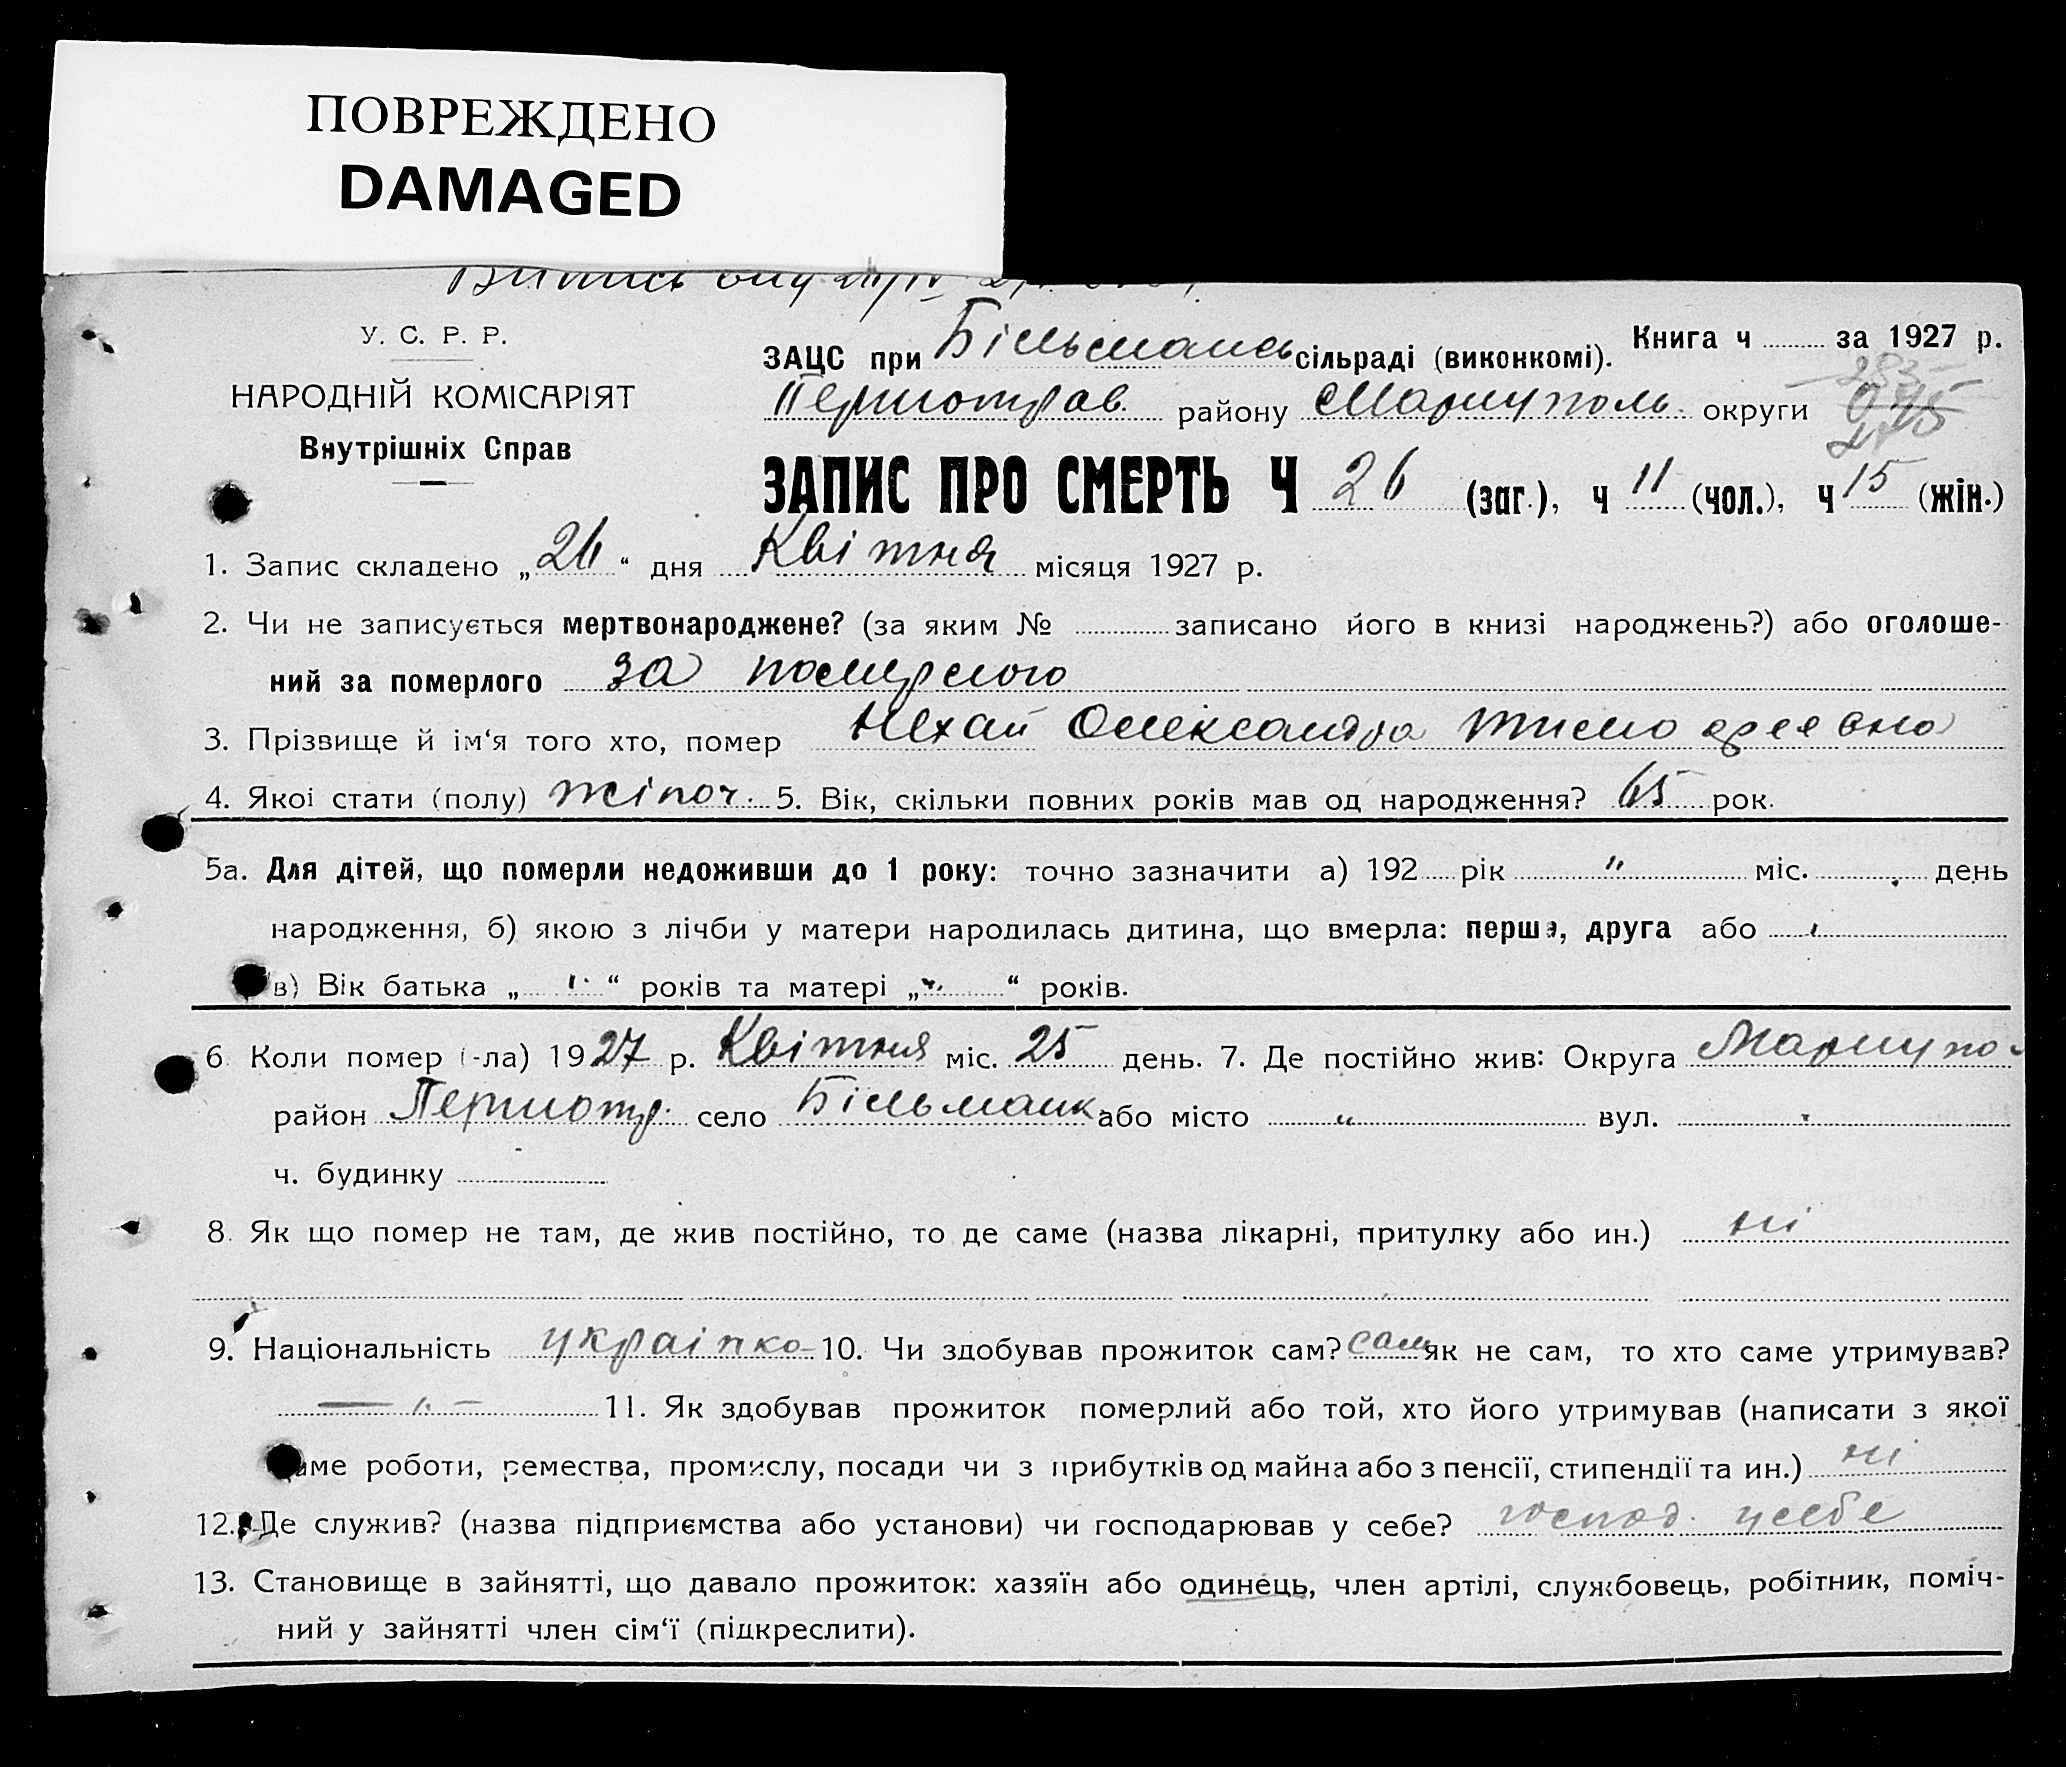 ПОВРЕЖДЕНО
DAMAGED
У. С. Р. Р.
НАРОДНІЙ КОМІСАРІЯТ
Внутрішніх Справ
Книга ч за 1927 р.
ЗАЦС при Більмансь сільраді (виконкомі).
Першотрав. району Маріуполь. округи
ЗАПИС ПРО СМЕРТЬ Ч 26 (заг.), ч 11 (чол.), ч 15 (жін.)
1. Запис складено „26“ дня Квітня місяця 1927 р.
2. Чи не записується мертвонароджене? (за яким № записано його в книзі народжень?) або оголоше-
ний за померлого за померлого
3. Прізвище й ім‘я того хто, помер Нехай Олександра
4. Якоі стати (полу) жіноч. 5. Вік, скільки повних років мав од народження? 65 рок.
5а. Для дітей, що померли недоживши до 1 року: точно зазначити а) 192 рік " міс. день
народження, б) якою з лічби у матери народилась дитина, що вмерла: перша, друга або
в) Вік батька „ “ років та матері „ “ років.
6 Коли помер (-ла) 1927 р. Квітня міс. 25 день. 7. Де постійно жив: Округа Маріупо-
район Першотр. село Більманк або місто " вул.
ч. будинку
8. Як що помер не там, де жив постійно, то де саме (назва лікарні, притулку або ин.) ні
9. Національність украінка 10. Чи здобував прожиток сам? сам як не сам, то хто саме утримував?
— " — 11. Як здобував прожиток померлий або той, хто його утримував (написати з якої
саме роботи, ремества, промислу, посади чи з прибутків од майна або з пенсії, стипендії та ин.) ні
12. Де служив? (назва підприємства або установи) чи господарював у себе? господ. усебе
13. Становище в зайнятті, що давало прожиток: хазяїн або одинець, член артілі, службовець, робітник, поміч-
ний у зайнятті член сім‘ї (підкреслити).